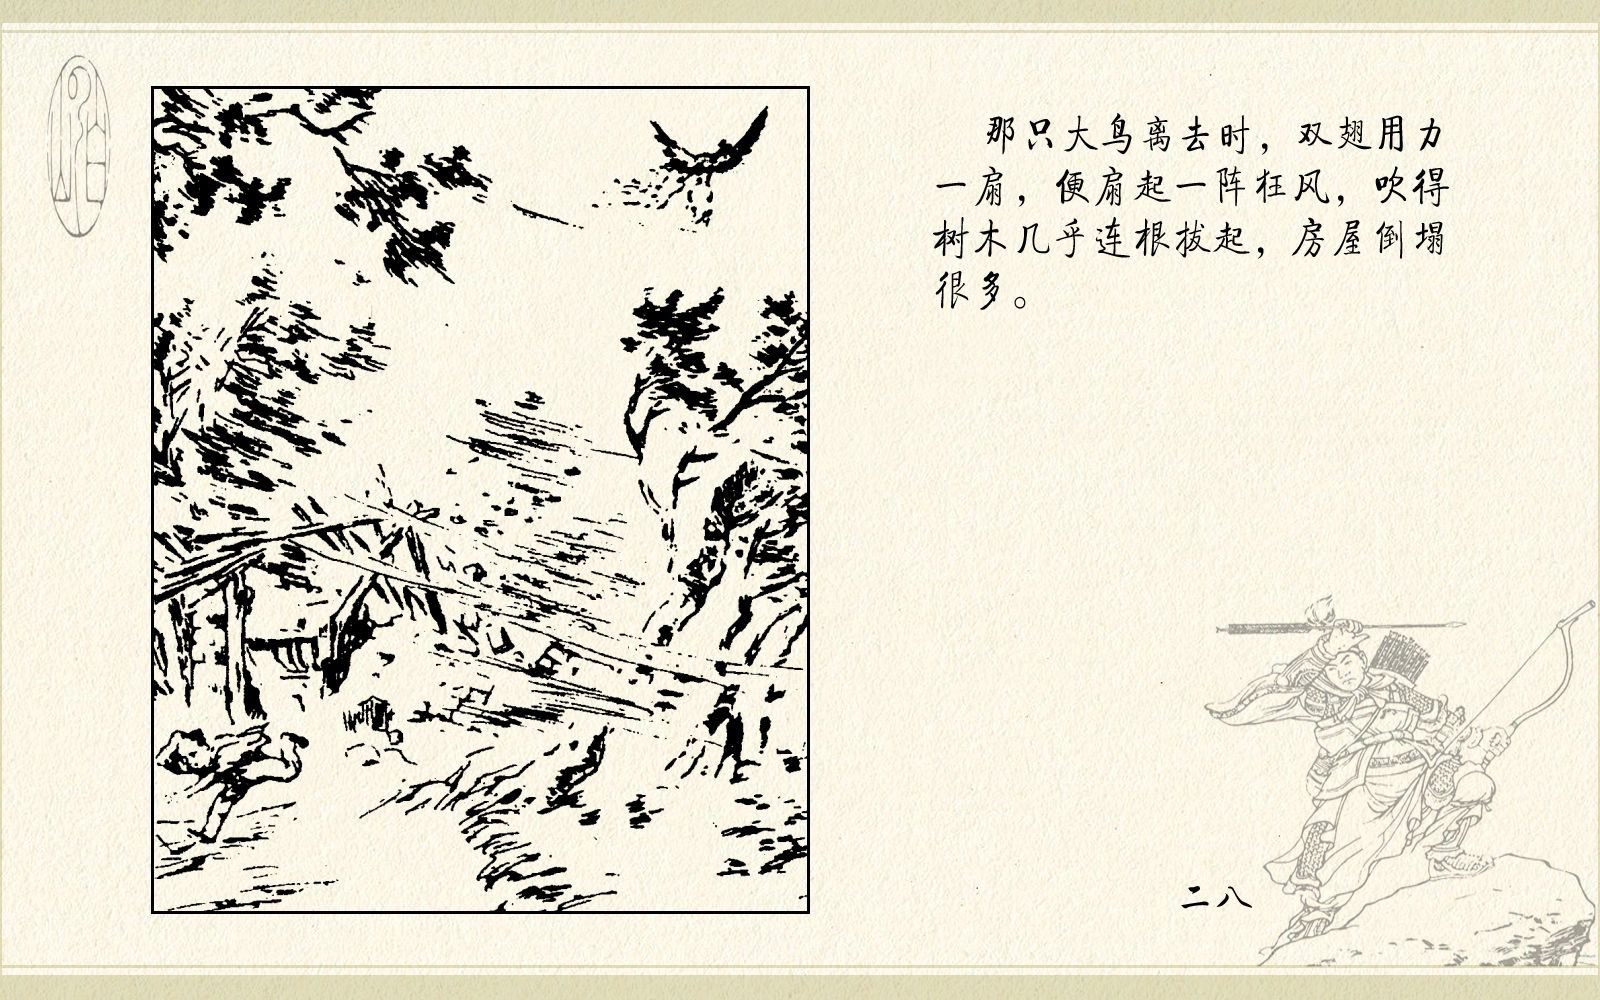 那只大鸟离去时，双翅用力
一扇，便扇起一阵狂风，吹得
树木几乎连根拔起，房屋倒塌
很多。
二八